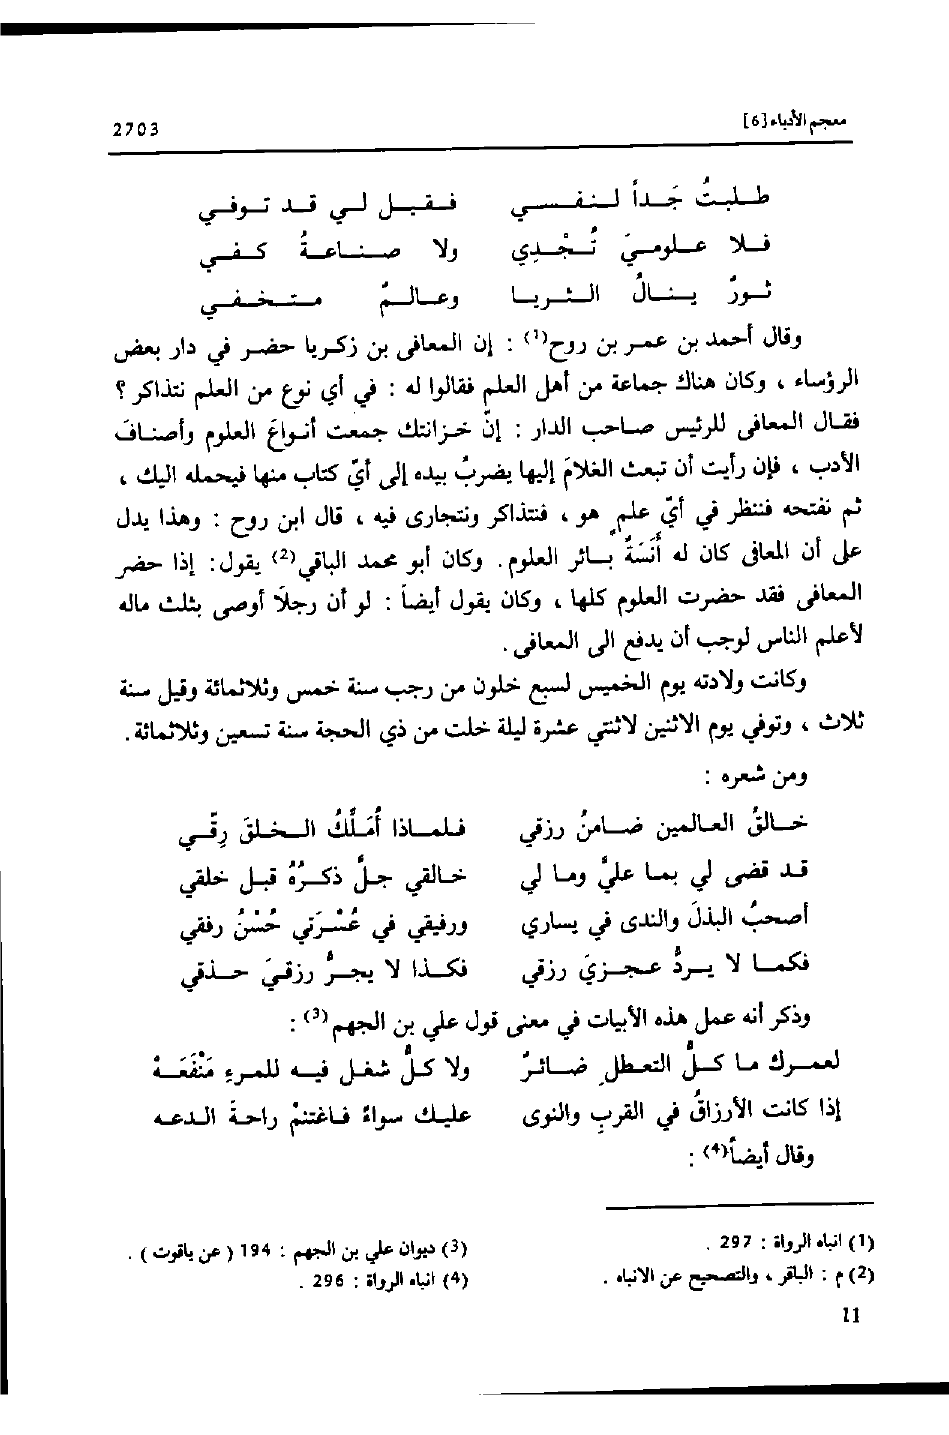 معجم الأدباء [6] 2703
طلبتُ جَداً لنفسي فقيل لي قد توفي
فلا علوميَ تُجْدِي ولا صناعةُ كفي
ثورٌ ينالُ الثريا وعالمٌ متخفي
وقال أحمد بن عمر بن روح(1) : إن المعافى بن زكريا حضر في دار بعض
الرؤساء ، وكان هناك جماعة من أهل العلم فقالوا له : في أي نوع من العلم نتذاكر ؟
فقال المعافى للرئيس صاحب الدار : إنّ خزانتك جمعت أنواعَ العلوم وأصنافَ
الأدب ، فإن رأيت أن تبعث الغلامَ إليها يضربُ بيده إلى أيّ كتاب منها فيحمله اليك ،
ثم نفتحه فننظر في أيّ علمٍ هو ، فنتذاكر ونتجارى فيه ، قال ابن روح : وهذا يدل
على أن المعافى كان له أَنَسَةٌ بسائر العلوم . وكان أبو محمد الباقي(2) يقول : إذا حضر
المعافى فقد حضرت العلوم كلها ، وكان يقول أيضاً : لو أن رجلاً أوصى بثلث ماله
لأعلم الناس لوجب أن يدفع الى المعافى .
وكانت ولادته يوم الخميس لسبع خلون من رجب سنة خمس وثلاثمائة وقيل سنة
ثلاث ، وتوفي يوم الاثنين لاثنتي عشرة ليلة خلت من ذي الحجة سنة تسعين وثلاثمائة .
ومن شعره :
خالقُ العالمين ضامنُ رزقي فلماذا أُمَلِّكُ الخلقَ رِقّي
قد قضى لي بما عليَّ وما لي خالقي جلَّ ذكرُهُ قبل خلقي
أصحبُ البذلَ والندى في يساري ورفيقي في عُسْرَتي حُسْنُ رفقي
فكما لا يردُّ عجزيَ رزقي فكذا لا يجرُّ رزقيَ حذقي
وذكر أنه عمل هذه الأبيات في معنى قول علي بن الجهم(3) :
لعمرك ما كلُّ التعطلِ ضائرٌ ولا كلُّ شغل فيه للمرءِ مَنْفَعَهْ
إذا كانت الأرزاقُ في القربِ والنوى عليك سواءً فاغتنمْ راحةَ الدعه
وقال أيضاً(4) :
(1) انباه الرواة : 297 .
(2) م : الباقر ، والتصحيح عن الانباه .
(3) ديوان علي بن الجهم : 194 ( عن ياقوت ) .
(4) انباه الرواة : 296 .
11